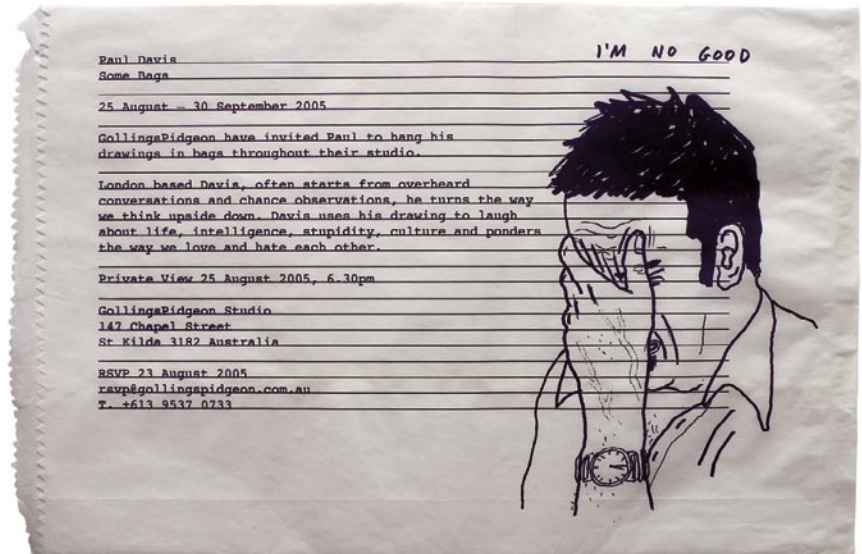 I'M NO GOOD
Paul Davis
Some Bags
25 August – 30 September 2005
GollingsPidgeon have invited Paul to hang his
drawings in bags throughout their studio.
London based Davis, often starts from overheard
conversations and chance observations, he turns the way
we think upside down. Davis uses his drawing to laugh
about life, intelligence, stupidity, culture and ponders
the way we love and hate each other.
Private View 25 August 2005, 6.30pm
GollingsPidgeon Studio
147 Chapel Street
St Kilda 3182 Australia
RSVP 23 August 2005
rsvp@gollingspidgeon.com.au
T. +613 9537 0733